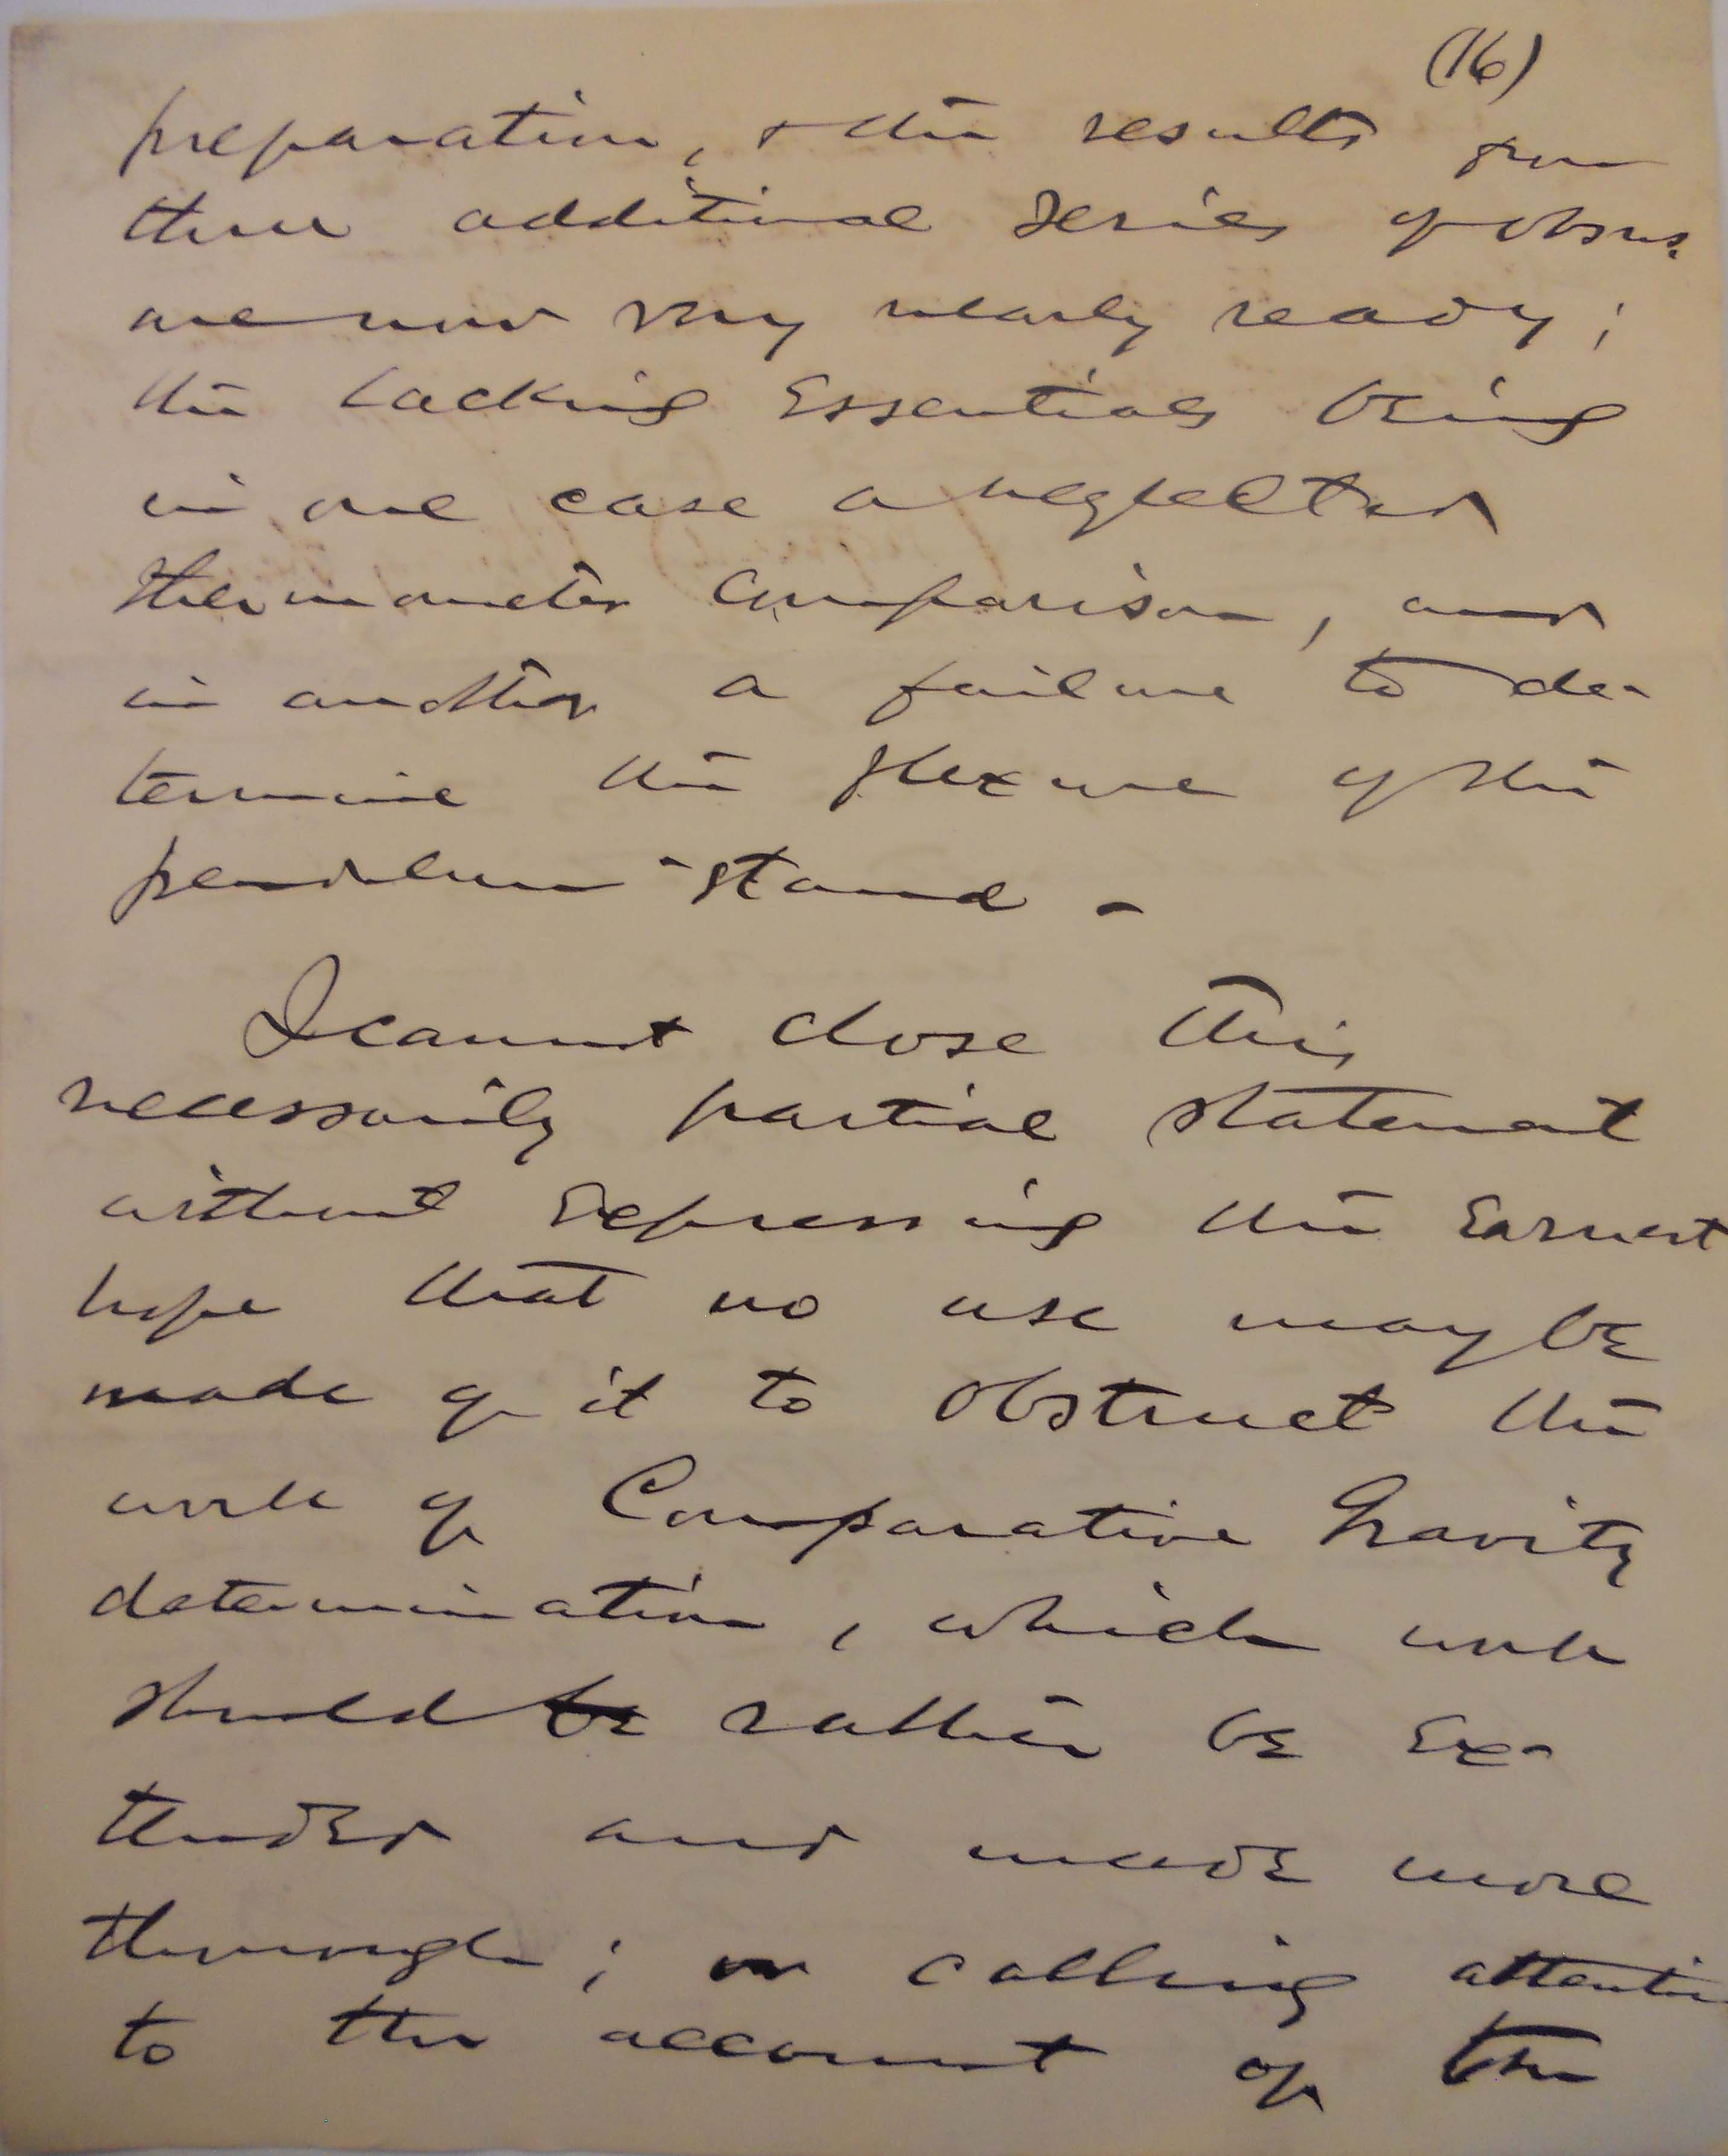 (16)
preparation, & the results from
three additional series of obsns.
are now very nearly ready;
the lacking essentials being
in one case a neglected
thermometer comparison, and
in another a failure to de-
termine the flexure of the
pendulum-stand -
I cannot close this
necessarily partial statement
without expressing the earnest
hope that no use may be
made of it to obstruct the
work of Comparative Gravity
determination, which work
should be rather be ex-
tended and made more
thorough; in calling attention
to the account of the